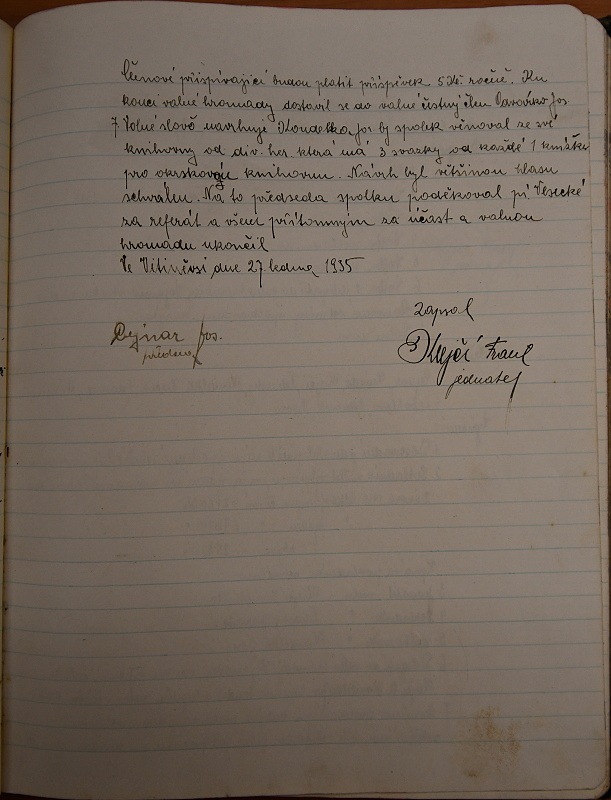 Členové přispívající budou platit příspěvek 5 Kč ročně. Ku
konci valné hromady dostavil se do valné čestný člen Jos.
7 Volné slovo navrhuje Koudelka Jos by spolek věnoval ze své
knihovny od div. her která má 3 svazky od každé 1 knížku
pro okrskovou knihovnu. Návrh byl většinou hlasu
schválen. Na to předseda spolku poděkoval pí. Veselké
za referát a všem přítomným za účast a valnou
hromadu ukončil
Ve Vitiněvsi dne 27 ledna 1935
zapsal
Cejnar Jos.
předseda
Krejčí Frant
jednatel